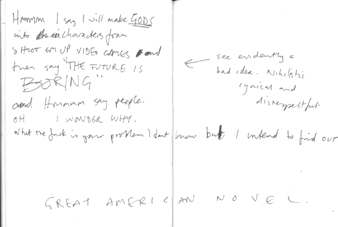 Hmmmm I say I will make GODS
into characters from
SHOOT EM UP VIDEO GAMES and
then say "THE FUTURE IS
BORING"
and Hmmmm say people.
OH I WONDER WHY.
what the fuck is your problem I dont know but I intend to find out
see evidently a
bad idea. Nihilistic
cynical and
disrespectful.
GREAT AMERICAN NOVEL.